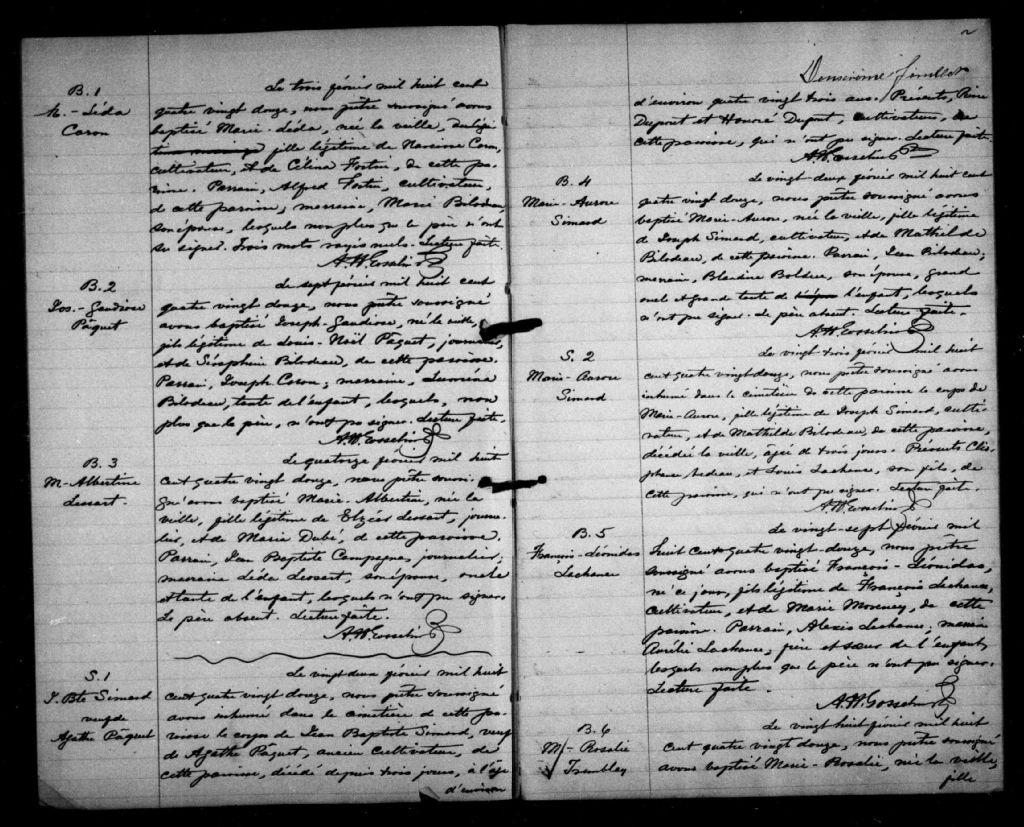 B. 1
M. - Léda
Caron
Le trois février mil huit cent
quatre vingt douze, nous prêtre soussigné avons
baptisé Marie-Léda, née la veille, du légi
time mariage fille légitime de Narcisse Caron,
cultivateur, et de Célina Fortin, de cette pa-
roisse. Parrain, Alfred Fortin, cultivateur,
de cette paroisse; marraine, Marie Bilodeau
son épouse, lesquels non plus que le père n'ont
su signer. Trois mots rayés nuls. Lecture faite.
A. H. Gosselin Ptre
B. 2
Jos. - Gaudiose
Pâquet
Le sept février mil huit cent
quatre vingt douze, nous prêtre soussigné
avons baptisé Joseph-Gaudiose, né la veille,
fils légitime de Louis-Noël Pâquet, journalier,
et de Séraphine Bilodeau, de cette paroisse.
Parrain, Joseph Caron; marraine, Luména
Bilodeau, tante de l'enfant, lesquels, non
plus que le père, n'ont pu signer. Lecture faite.
A. H. Gosselin Ptre
B. 3
M-Albertine
Lessart.
Le quatorze février mil huit
cent quatre vingt douze, nous prêtre soussi-
gné avons baptisé Marie-Albertine, née la
veille, fille légitime de Elzéar Lessart, journa-
lier, et de Marie Dubé, de cette paroisse.
Parrain, Jean Baptiste Campagna, journalier,
marraine Léda Lessart, son épouse, oncle
et tante de l'enfant, lesquels n'ont pu signer.
Le père absent. Lecture faite.
A. H. Gosselin Ptre
S. 1
J. Bte Simard
veuf de
Agathe Pâquet
Le vingt deux février mil huit
cent quatre vingt douze, nous prêtre soussigné
avons inhumé dans le cimetière de cette pa-
roisse le corps de Jean Baptiste Simard, veuf
de Agathe Pâquet, ancien cultivateur, de
cette paroisse, décédé depuis trois jours, à l'âge
d'environ
2
Deuxième feuillet
d'environ quatre vingt trois ans. Présents, Pierre
Dupont et Honoré Dupont, cultivateurs, de
cette paroisse, qui n'ont pu signer. Lecture faite.
A. H. Gosselin Ptre
B. 4
Marie-Aurore
Simard
Le vingt-deux février mil huit cent
quatre vingt douze, nous prêtre soussigné avons
baptisé Marie-Aurore, née la veille, fille légitime
de Joseph Simard, cultivateur, et de Mathilde
Bilodeau, de cette paroisse. Parrain, Jean Bilodeau;
marraine, Blandine Bolduc, son épouse, grand
oncle et grande tante de l'enfant, lesquels
n'ont pu signer. Le père absent. Lecture faite.
A. H. Gosselin Ptre
S. 2
Marie-Aurore
Simard
Le vingt trois février mil huit
cent quatre vingt douze, nous prêtre soussigné avons
inhumé dans le cimetière de cette paroisse le corps de
Marie-Aurore, fille légitime de Joseph Simard, culti-
vateur, et de Mathilde Bilodeau, de cette paroisse,
décédée la veille, âgée de trois jours. Présents
Nadeau, et Louis Lachance, son fils, de
cette paroisse, qui n'ont pu signer. Lecture faite.
A. H. Gosselin Ptre
B. 5
François-Léonidas
Lachance
Le vingt-sept février mil
huit cent quatre vingt-douze, nous prêtre
soussigné avons baptisé François-Léonidas,
né ce jour, fils légitime de François Lachance,
cultivateur, et de Marie Morency, de cette
paroisse. Parrain, Alexis Lachance; marraine
Aurélie Lachance; frère et sœur de l'enfant,
lesquels non plus que le père n'ont pu signer.
Lecture faite.
A. H. Gosselin Ptre
B. 6
M-Rosalie
Tremblay
Le vingt huit février mil huit
cent quatre vingt douze, nous prêtre soussigné
avons baptisé Marie-Rosalie, née la veille,
fille